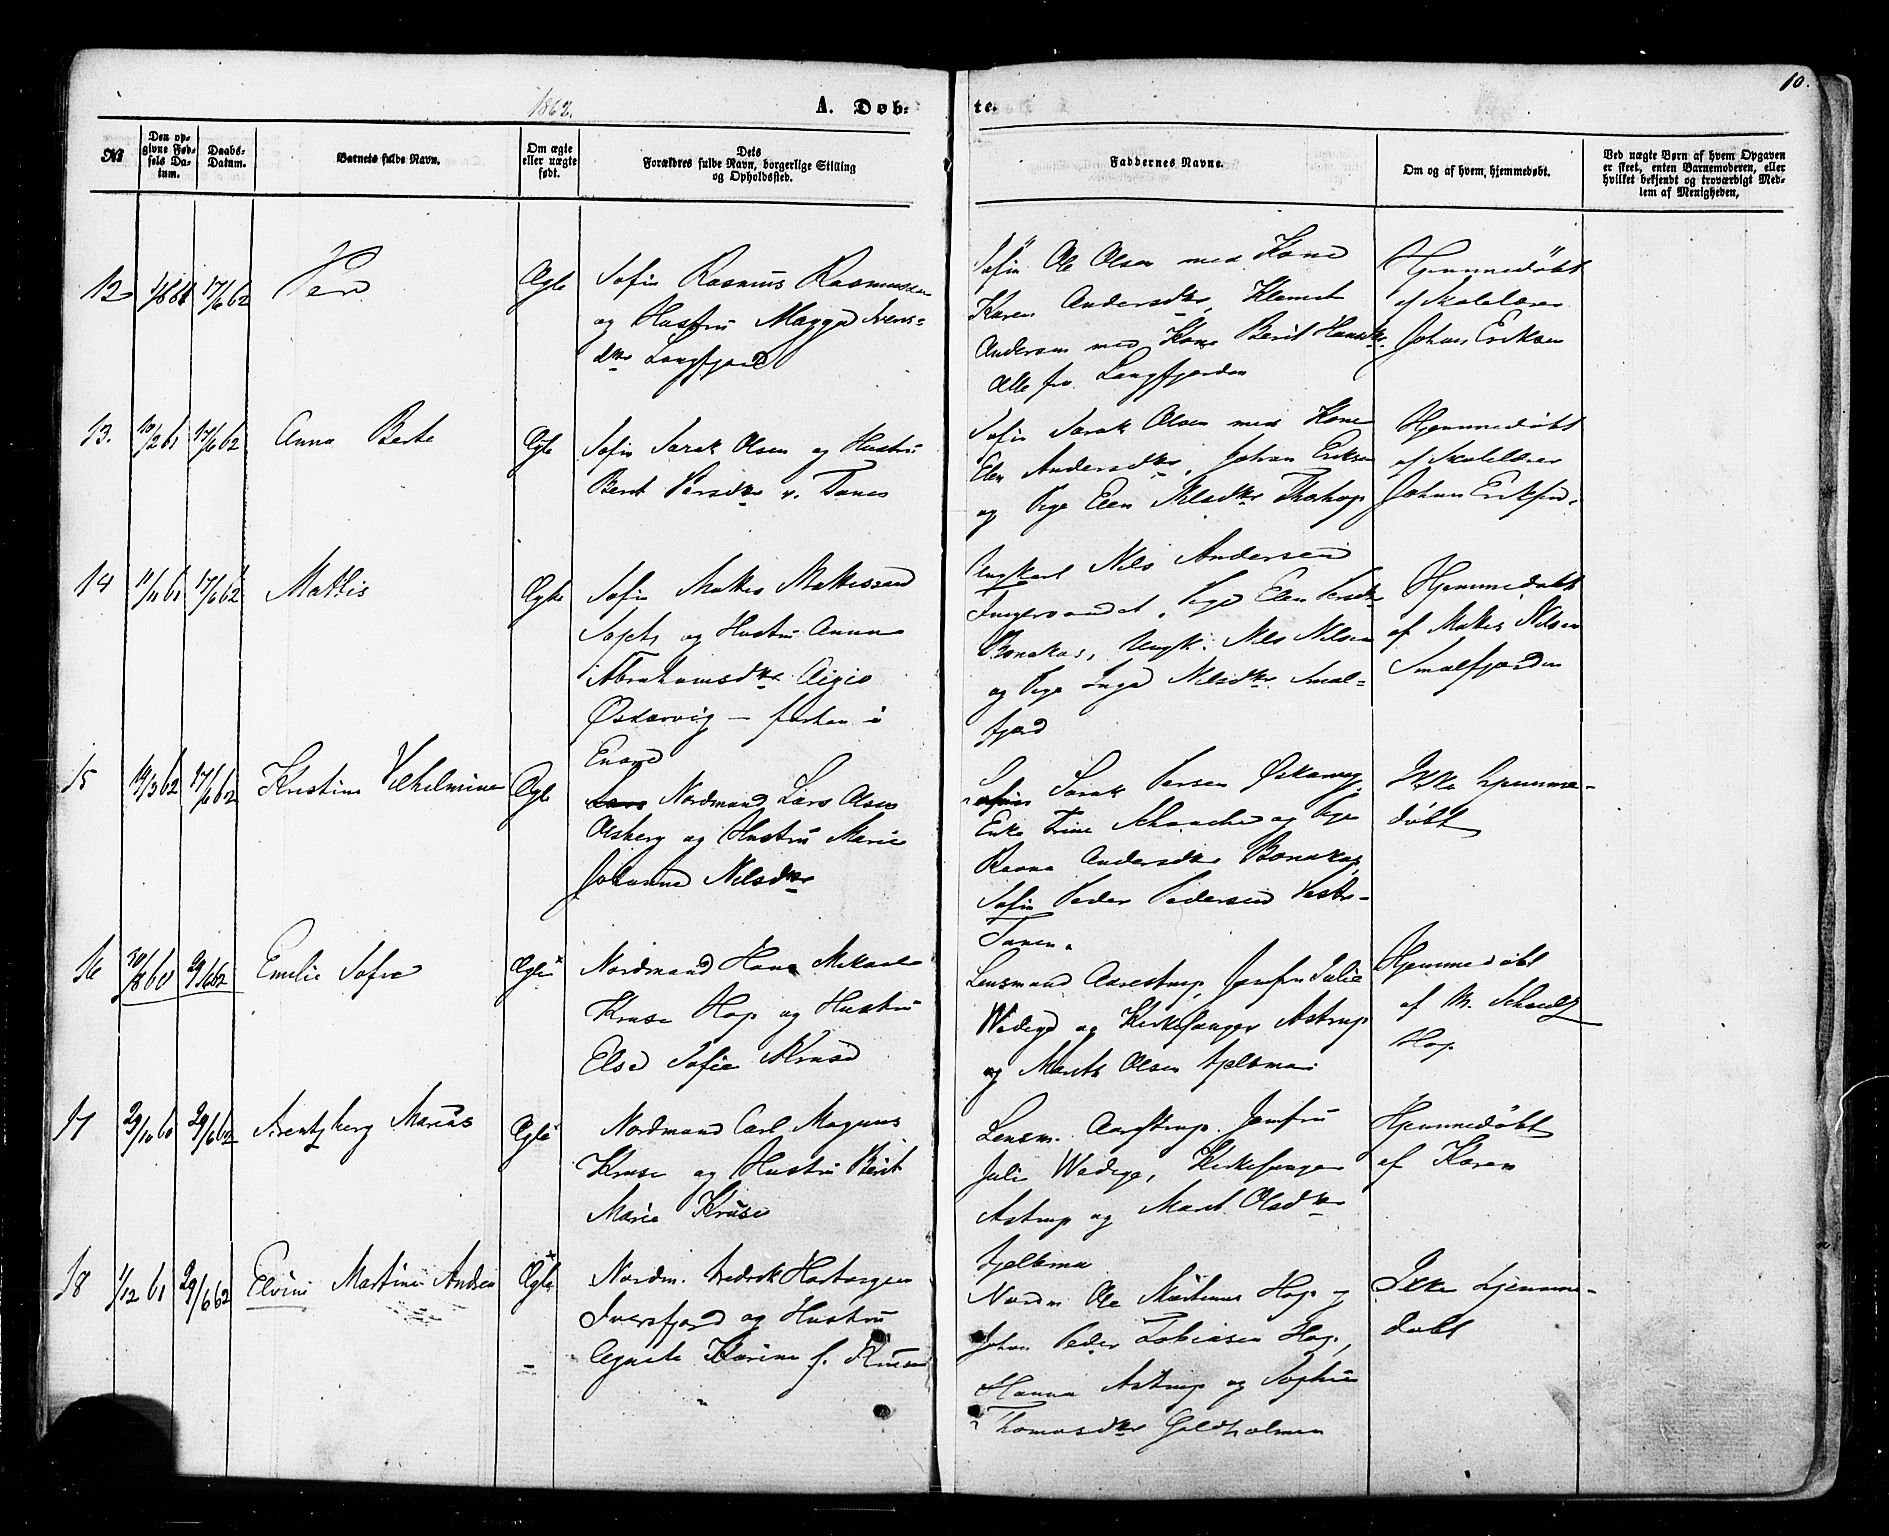 10.
1862.
A. Døb-
te.
No
Den op-
givne Fød-
sels Da-
tum.
Daabs-
Datum.
Barnets fulde Navn.
Om ægte
eller uægte
født.
Dets
Forældres fulde Navn, borgerlige Stilling
og Opholdssted.
Faddernes Navne.
Om og af hvem, hjemmedøbt.
Ved uægte Børn af hvem Opgaven
er skeet, enten Barnemoderen, eller
hvilket bekjendt og troværdigt Med-
lem af Menigheden,
12 17/6 62 Per Ægte
Søfin Rasmus Rasmussen
og Hustru Magga Ivers-
dtr Langfjord
Søfin Ole Olsen med Kone
Karen Andersdtr, Klemet
Andersen med Kone Berit Hansdtr
Alle fra Langfjorden
Hjemmedøbt
af Skolelærer
Johan Eriksen
13. 10/2 61 17/6 62 Anna Berte Ægte
Søfin Sarak Olsen og Hustru
Berit Persdtr v. Tanen
Søfin Sarak Olsen med Kone
Elen Andersdtr, Johan Eriksen
og Pige Elen Nilsdtr
Hjemmedøbt
af Skolelærer
Johan Eriksen.
14 11/11 61 17/6 62 Mattis Ægte
Søfin Mattis Mathissen
og Hustru Anna
Abrahamsdtr Aigio
Øskarvig — forhen i
Enare
Ungkarl Nils Andersen
Pige Elen Persdtr
Bonakas, Ungk. Nils Nilsen
og Pige Inga Nilsdtr Smal-
fjord
Hjemmedøbt
af Mattis Nilsen
Smalfjorden
15 14/3 62 17/6 62 Kristine Vilhelmine Ægte
Lars Nordmand Lars Olsen
Olsberg og Hustru Marie
Johanna Nilsdtr
Søfin Sarak Persen Øskarvig,
Enke Trine og Pige
Ravna Andersdtr Bonakas,
Søfin Peder Pedersen Vestre-
Tanen.
Ikke hjemme-
døbt
16 30/8 60 29/6 62 Emilie Sofie Ægte
Nordmand Hans Mikael
Kruse Hop og Hustru
Else Sofie Kruse
Lensmand Aarestrup, Jomfru Julie
Wedege og Kirkesanger Astrup
og Marit Olsen Fjeldma
Hjemmedøbt
af M. Schanche
Hop
17 29/10 60 29/6 62 Arentzberg Marius Ægte
Nordmand Carl Magnus
Kruse og Hustru Berit
Marie Kruse
Lensm. Aarestrup, Jomfru
Julie Wedege, Kirkesanger
Astrup og Marit Olsdtr
Fjeldma
Hjemmedøbt
af Karen
18 1/12 61 29/6 62 Elvine Martine Andrea Ægte
Nordm. Fredrik
Iversfjord og Hustru
Agnete Karine f. Kruse
Nordm Ole Martinus Hop og
Johan Peder Tobiasen Hop,
Hanna Astrup og Sophie
Thomasdtr Goldholmen
Ikke hjemme-
døbt